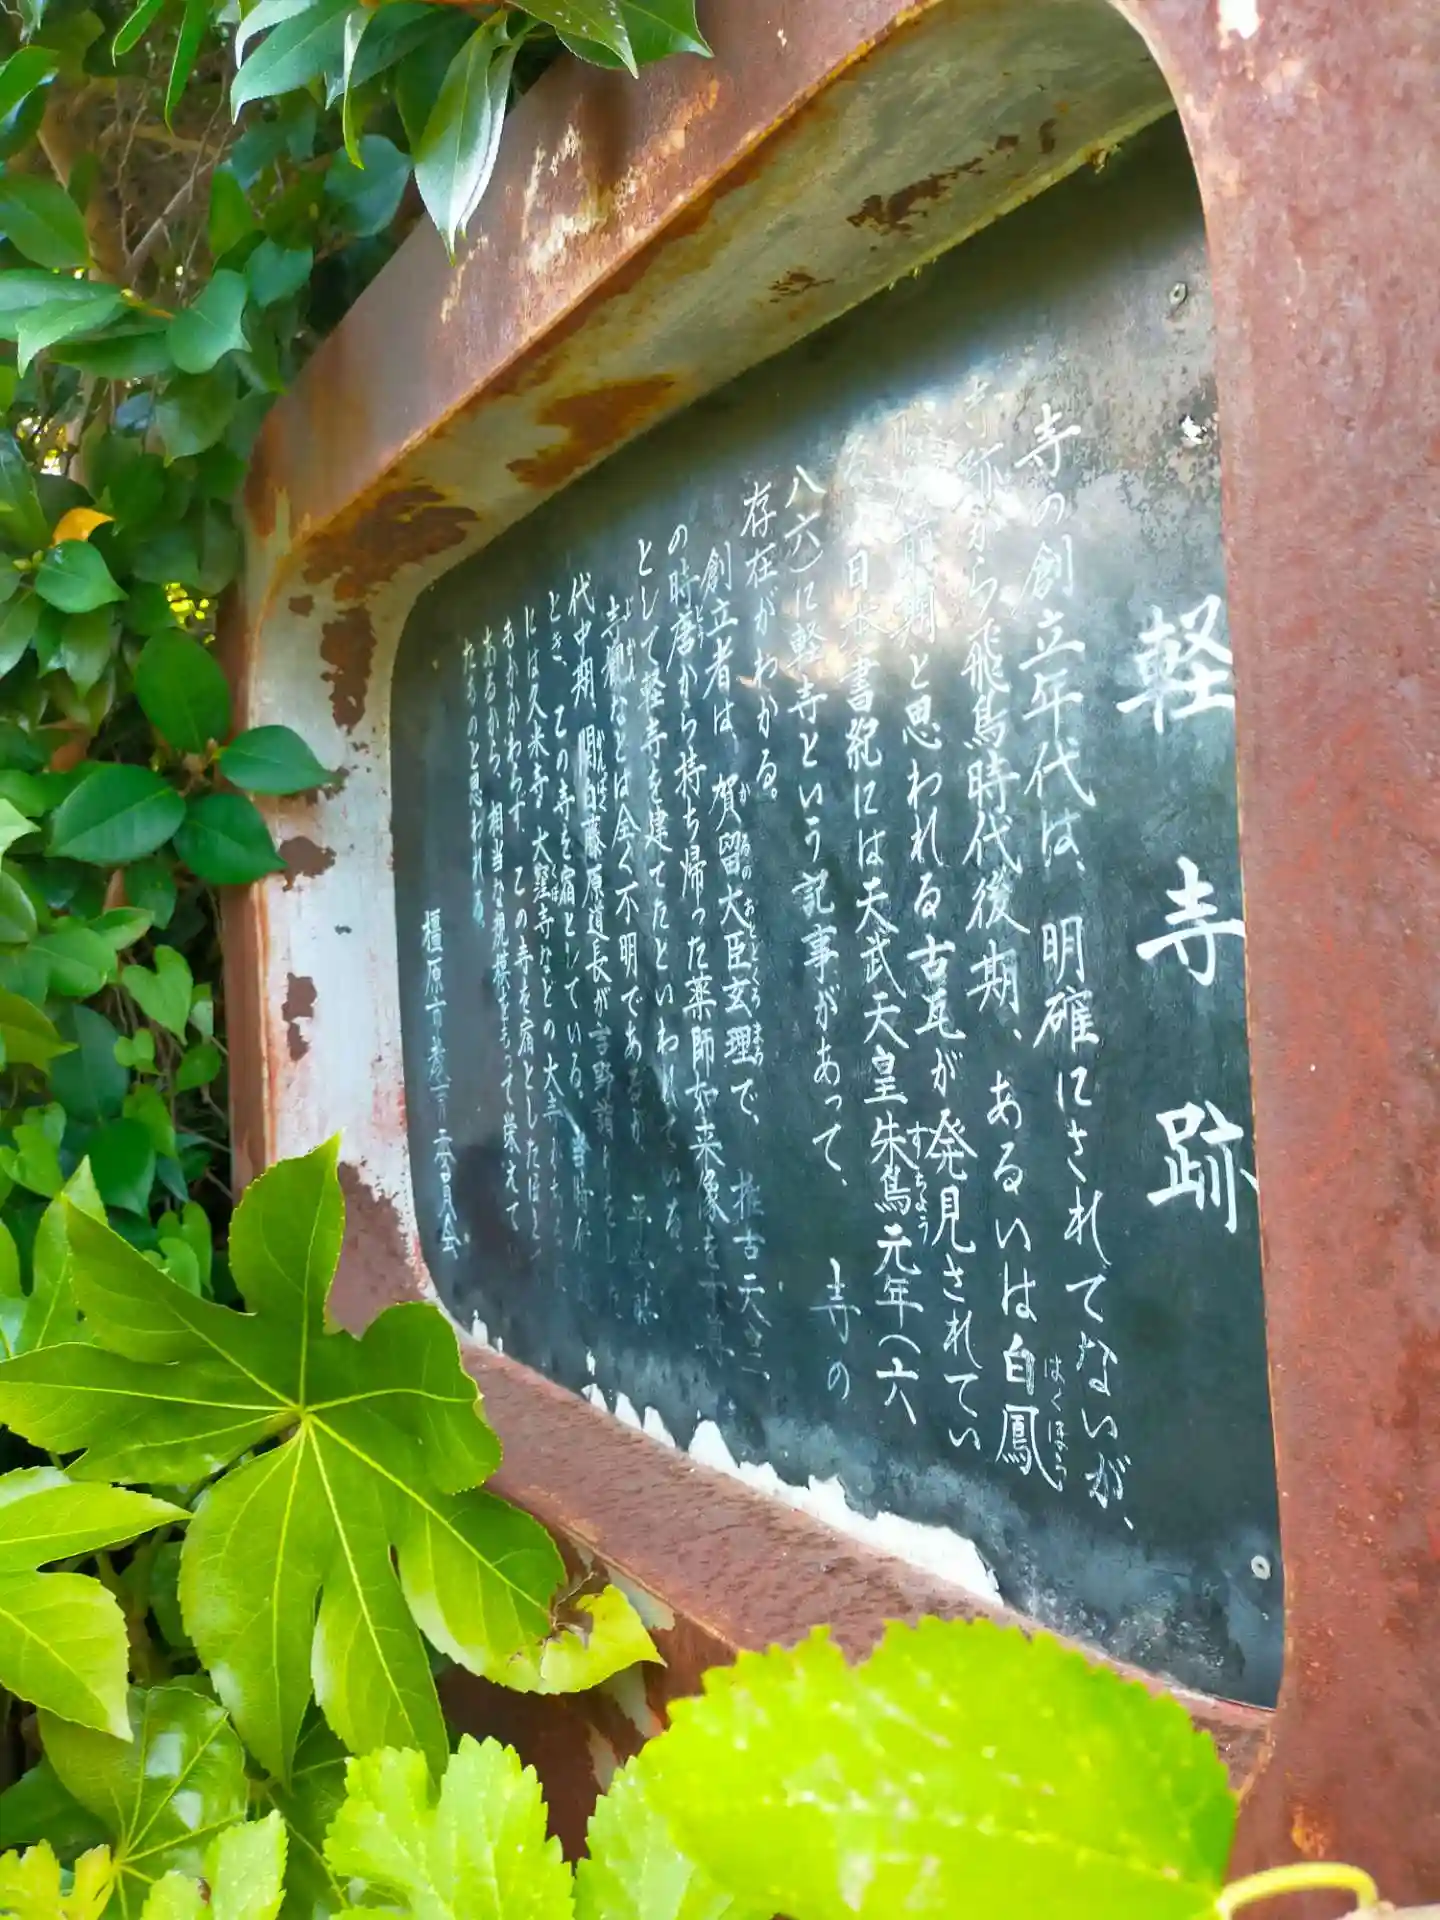 軽寺跡
寺の創立年代は、明確にされてないが、
寺跡から飛鳥時代後期、あるいは白鳳
はくほう
前期と思われる古瓦が発見されてい
日本書紀には天武天皇朱鳥元年(六
すちょう
八六)に軽寺という記事があって、寺の
存在がわかる。
創立者は、賀留大臣玄理で、推古天皇
かるのおとどくろまろ
の時唐から持ち帰った薬師如来像を本尊
として軽寺を建てたといわれている。
寺観などは全く不明であるが、平安時
代中期、関白藤原道長が吉野詣
かんぱく
とき、この寺を宿としている。当時
には久米寺、大窪寺などの大寺
くぼ
もかかわらず、この寺を宿としたほど
あるから、相当な規模をもって栄えて
たものと思われる。
橿原市教育委員会